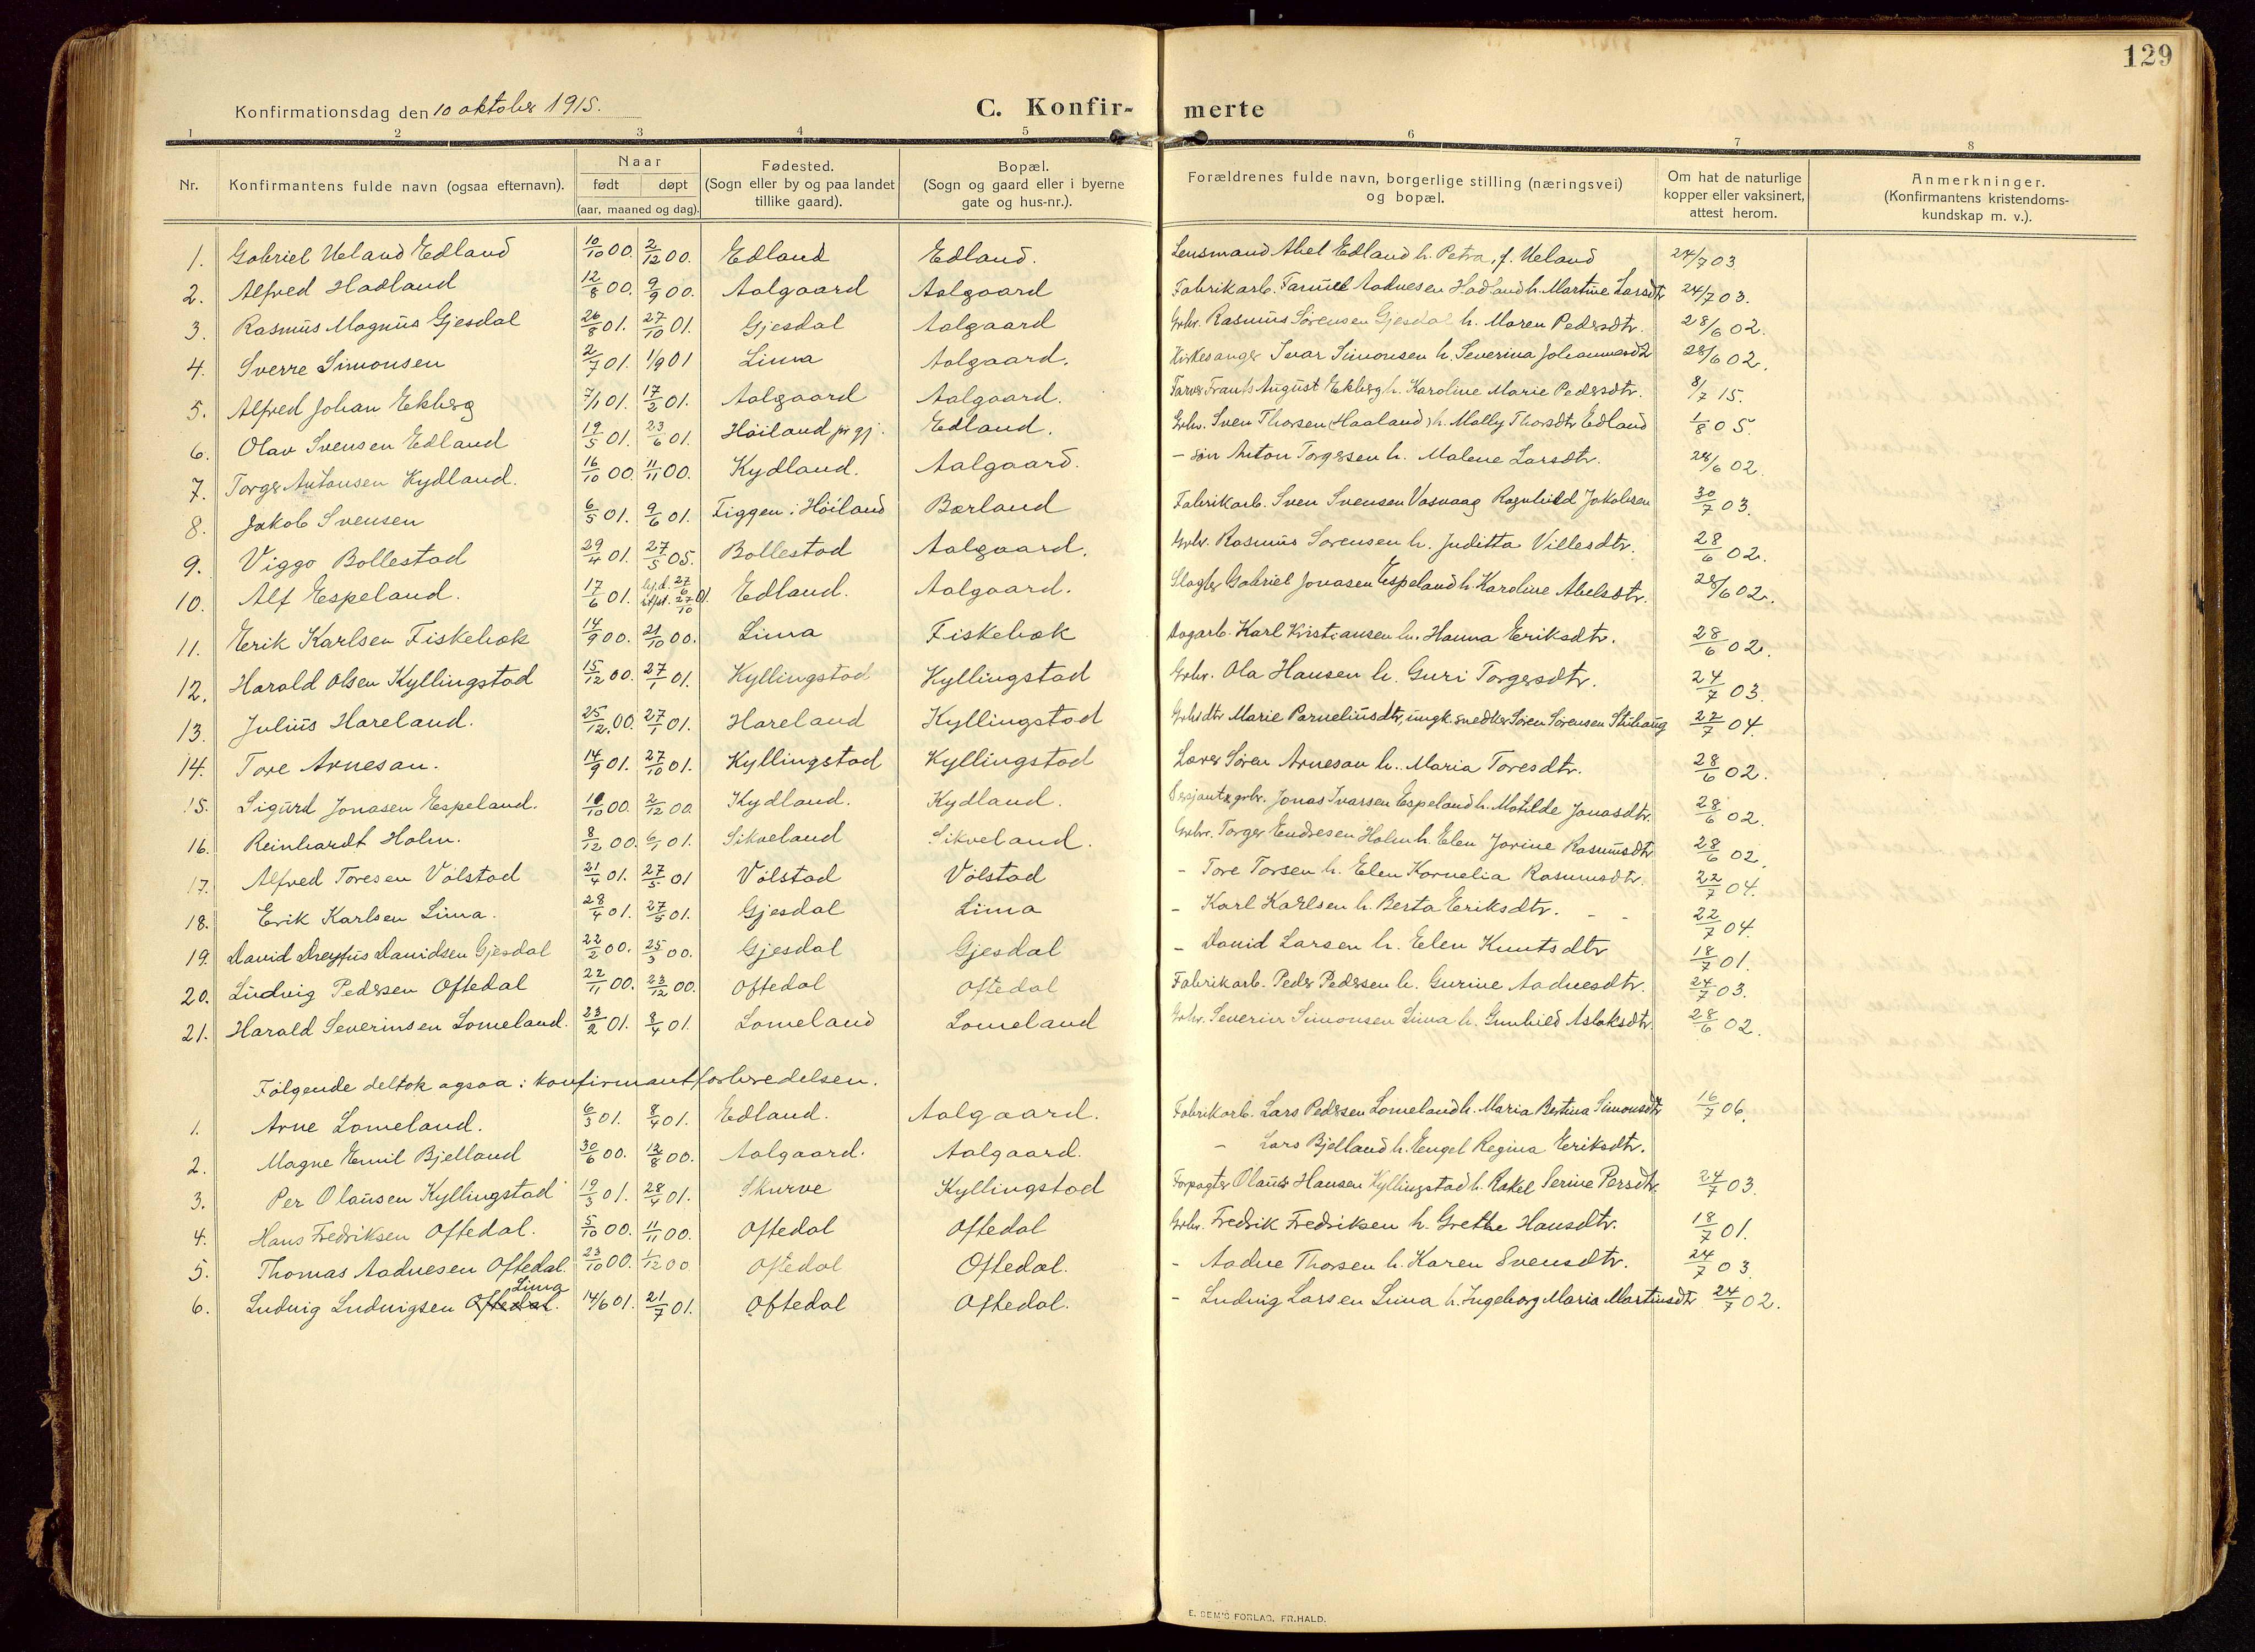 129
Konfirmationsdag den 10 oktober 1915.
C. Konfir- merte
1 2 3 4 5 6 7 8
Nr. Konfirmantens fulde navn (ogsaa efternavn). Naar født døpt (aar, maaned og dag). Fødested. (Sogn eller by og paa landet tillike gaard). Bopæl. (Sogn og gaard eller i byerne gate og hus-nr.). Forældrenes fulde navn, borgerlige stilling (næringsvei) og bopæl. Om hat de naturlige kopper eller vaksinert, attest herom. Anmerkninger. (Konfirmantens kristendoms- kundskap m. v.).
1. Gabriel Ueland Edland 10/10 00. 2/12 00. Edland Edland. Lensmand Abel Edland h. Petra, f. Ueland 24/7 03
2. Alfred Hadland 12/8 00. 9/9 00. Aalgaard Aalgaard Fabrikarb. Aadnesen Hadland h. Martine Larsdtr 24/7 03.
3. Rasmus Magnus Gjesdal 26/8 01. 27/10 01. Gjesdal Aalgaard Grbr. Rasmus Sørensen Gjesdal h. Maren Pedersdtr. 28/6 02.
4. Sverre Simonsen 2/7 01. 1/9 01 Lima Aalgaard. Kirkesanger Ivar Simonsen h. Severina Johannesdt 28/6 02.
5. Alfred Johan Ekberg 7/1 01. 17/2 01. Aalgaard Aalgaard. Farver Frants August Ekberg h. Karoline Marie Pedersdtr. 8/7 15.
6. Olav Svensen Edland 19/5 01. 23/6 01. Høiland pr gj. Edland. Grbr. Sven Thorsen (Haaland) h. Mally Thorsdtr Edland 1/8 05.
7. Torger Antonsen Kydland. 16/10 00. 11/11 00. Kydland. Aalgaard. - søn Anton Torgersen h. Malene Larsdtr. 28/6 02.
8. Jakob Svensen 6/5 01. 9/6 01. Figgen i Høiland Bærland Fabrikarb. Sven Svensen Vasvaag Ragnhild Jakobsen 30/7 03.
9. Viggo Bollestad 29/4 01. 27/5 05. Bollestad Aalgaard. Grbr. Rasmus Sørensen h. Juditta Villesdtr. 28/6 02.
10. Alf Espeland. 17/6 01. hjd. 27/6 stfst. 27/10 01. Edland. Aalgaard. Slagter Gabriel Jonasen Espeland h. Karoline Abelsdtr. 28/6 02.
11. Erik Karlsen Fiskebæk 14/9 00. 21/10 00. Lima Fiskebæk Dagarb. Karl Kristiansen h. Hanna Eriksdtr. 28/6 02.
12. Harald Olsen Kyllingstad 15/12 00. 27/1 01. Kyllingstad Kyllingstad Grbr. Ola Hansen h. Guri Torgersdtr. 24/7 03.
13. Julius Hareland. 25/12. 00. 27/1 01. Hareland Kyllingstad Grbrsdtr Marie Parneliusdtr, ungk. snedker Søren Sørensen Stuhaug 22/7 04.
14. Tore Arnesan. 14/9 01. 27/10 01. Kyllingstad Kyllingstad Lærer Søren Arnesan h. Maria Toresdtr. 28/6 02.
15. Sigurd Jonasen Espeland. 10/10 00. 2/12 00. Kydland. Kydland. Sersjant & grbr. Jonas Ivarsen Espeland h. Matilde Jonasdtr. 28/6 02.
16. Reinhardt Holm. 8/12 00. 6/1 01. Sikveland Sikveland. Grbr. Torger Endresen Holm h. Elen Jorine Rasmusdtr 28/6 02.
17. Alfred Toresen Vølstad 21/4 01. 27/5 01 Vølstad Vølstad - Tore Torsen h. Elen Kornelia Rasmusdtr. 22/7 04.
18. Erik Karlsen Lima. 28/4 01. 27/5 01. Gjesdal Lima - Karl Karlsen h. Berta Eriksdtr. - - 22/7 04.
19. David Dreyfus Davidsen Gjesdal 22/2 00. 25/3 00. Gjesdal Gjesdal - David Larsen h. Elen Knutsdtr 18/7 01.
20. Ludvig Pedersen Oftedal 22/11 00. 23/12 00. Oftedal Oftedal Fabrikarb. Peder Pedersen h. Gurine Aadnesdtr. 24/7 03.
21. Harald Severinsen Lomeland. 23/2 01. 8/4 01. Lomeland Lomeland Grbr. Severin Simonsen Lima h. Gunhild Aslaksdtr. 28/6 02.
Følgende deltok ogsaa i konfirmantforberedelsen.
1. Arne Lomeland. 6/3 01. 8/4 01. Edland. Aalgaard. Fabrikarb. Lars Pedersen Lomeland h. Maria Bertina Simonsdtr 16/7 06.
2. Magne Emil Bjelland 30/6 00. 12/8 00. Aalgaard. Aalgaard. - Lars Bjelland h. Engel Regina Eriksdtr.
3. Per Olausen Kyllingstad 19/3 01. 28/4 01. Skurve Kyllingstad Forpagter Olaus Hansen Kyllingstad h. Rakel Serine Persdtr. 24/7 03.
4. Hans Fredriksen Oftedal. 5/10 00. 11/11 00. Oftedal Oftedal Grbr. Fredrik Fredriksen h. Grethe Hansdtr. 18/7 01.
5. Thomas Aadnesen Oftedal. 23/10 00. 1/12 00 Oftedal Oftedal. - Aadne Thorsen h. Karen Svensdtr. 24/7 03.
6. Ludvig Ludvigsen Oftedal. Lima 14/6 01. 21/7 01. Oftedal Oftedal. - Ludvig Larsen Lima h. Ingeborg Maria Martinsdtr 24/7 02.
E. SEM'S FORLAG, FR.HALD.